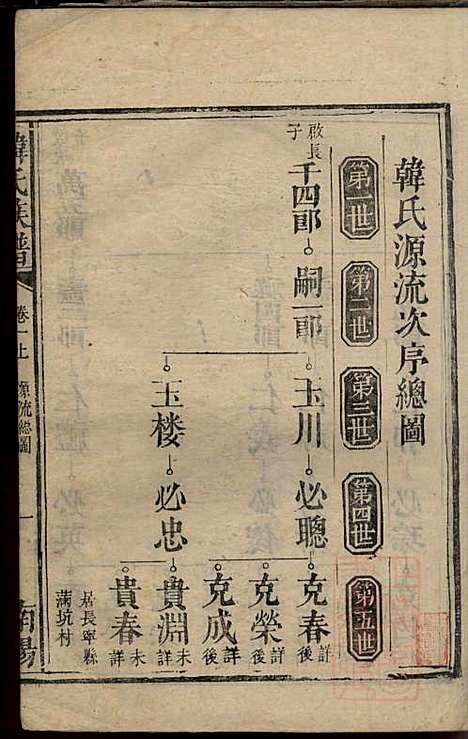 韓氏源流次序總圖
第一世
第二世
第三世
第四世
第五世
啟長子
千四郎
嗣一郎
玉川
必聰
克春
詳後
克榮
詳後
克成
詳後
玉楼
必忠
貴淵
未詳
貴春
未詳
居長寧縣
滿坑村
韓氏族譜
卷一上
源流總圖
一
南陽